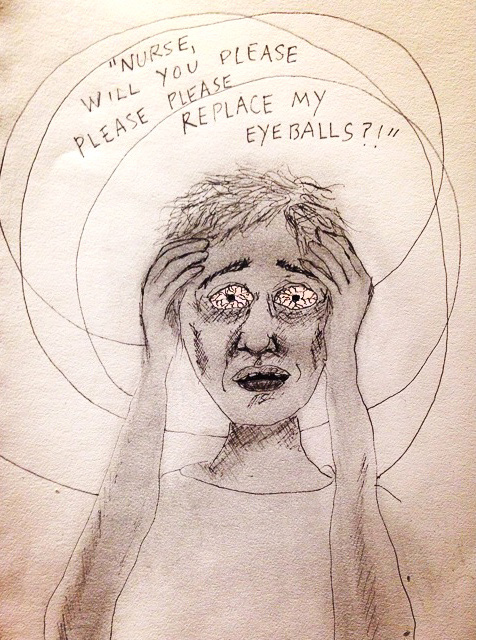 "NURSE,
WILL YOU PLEASE
PLEASE PLEASE
REPLACE MY
EYEBALLS?!"